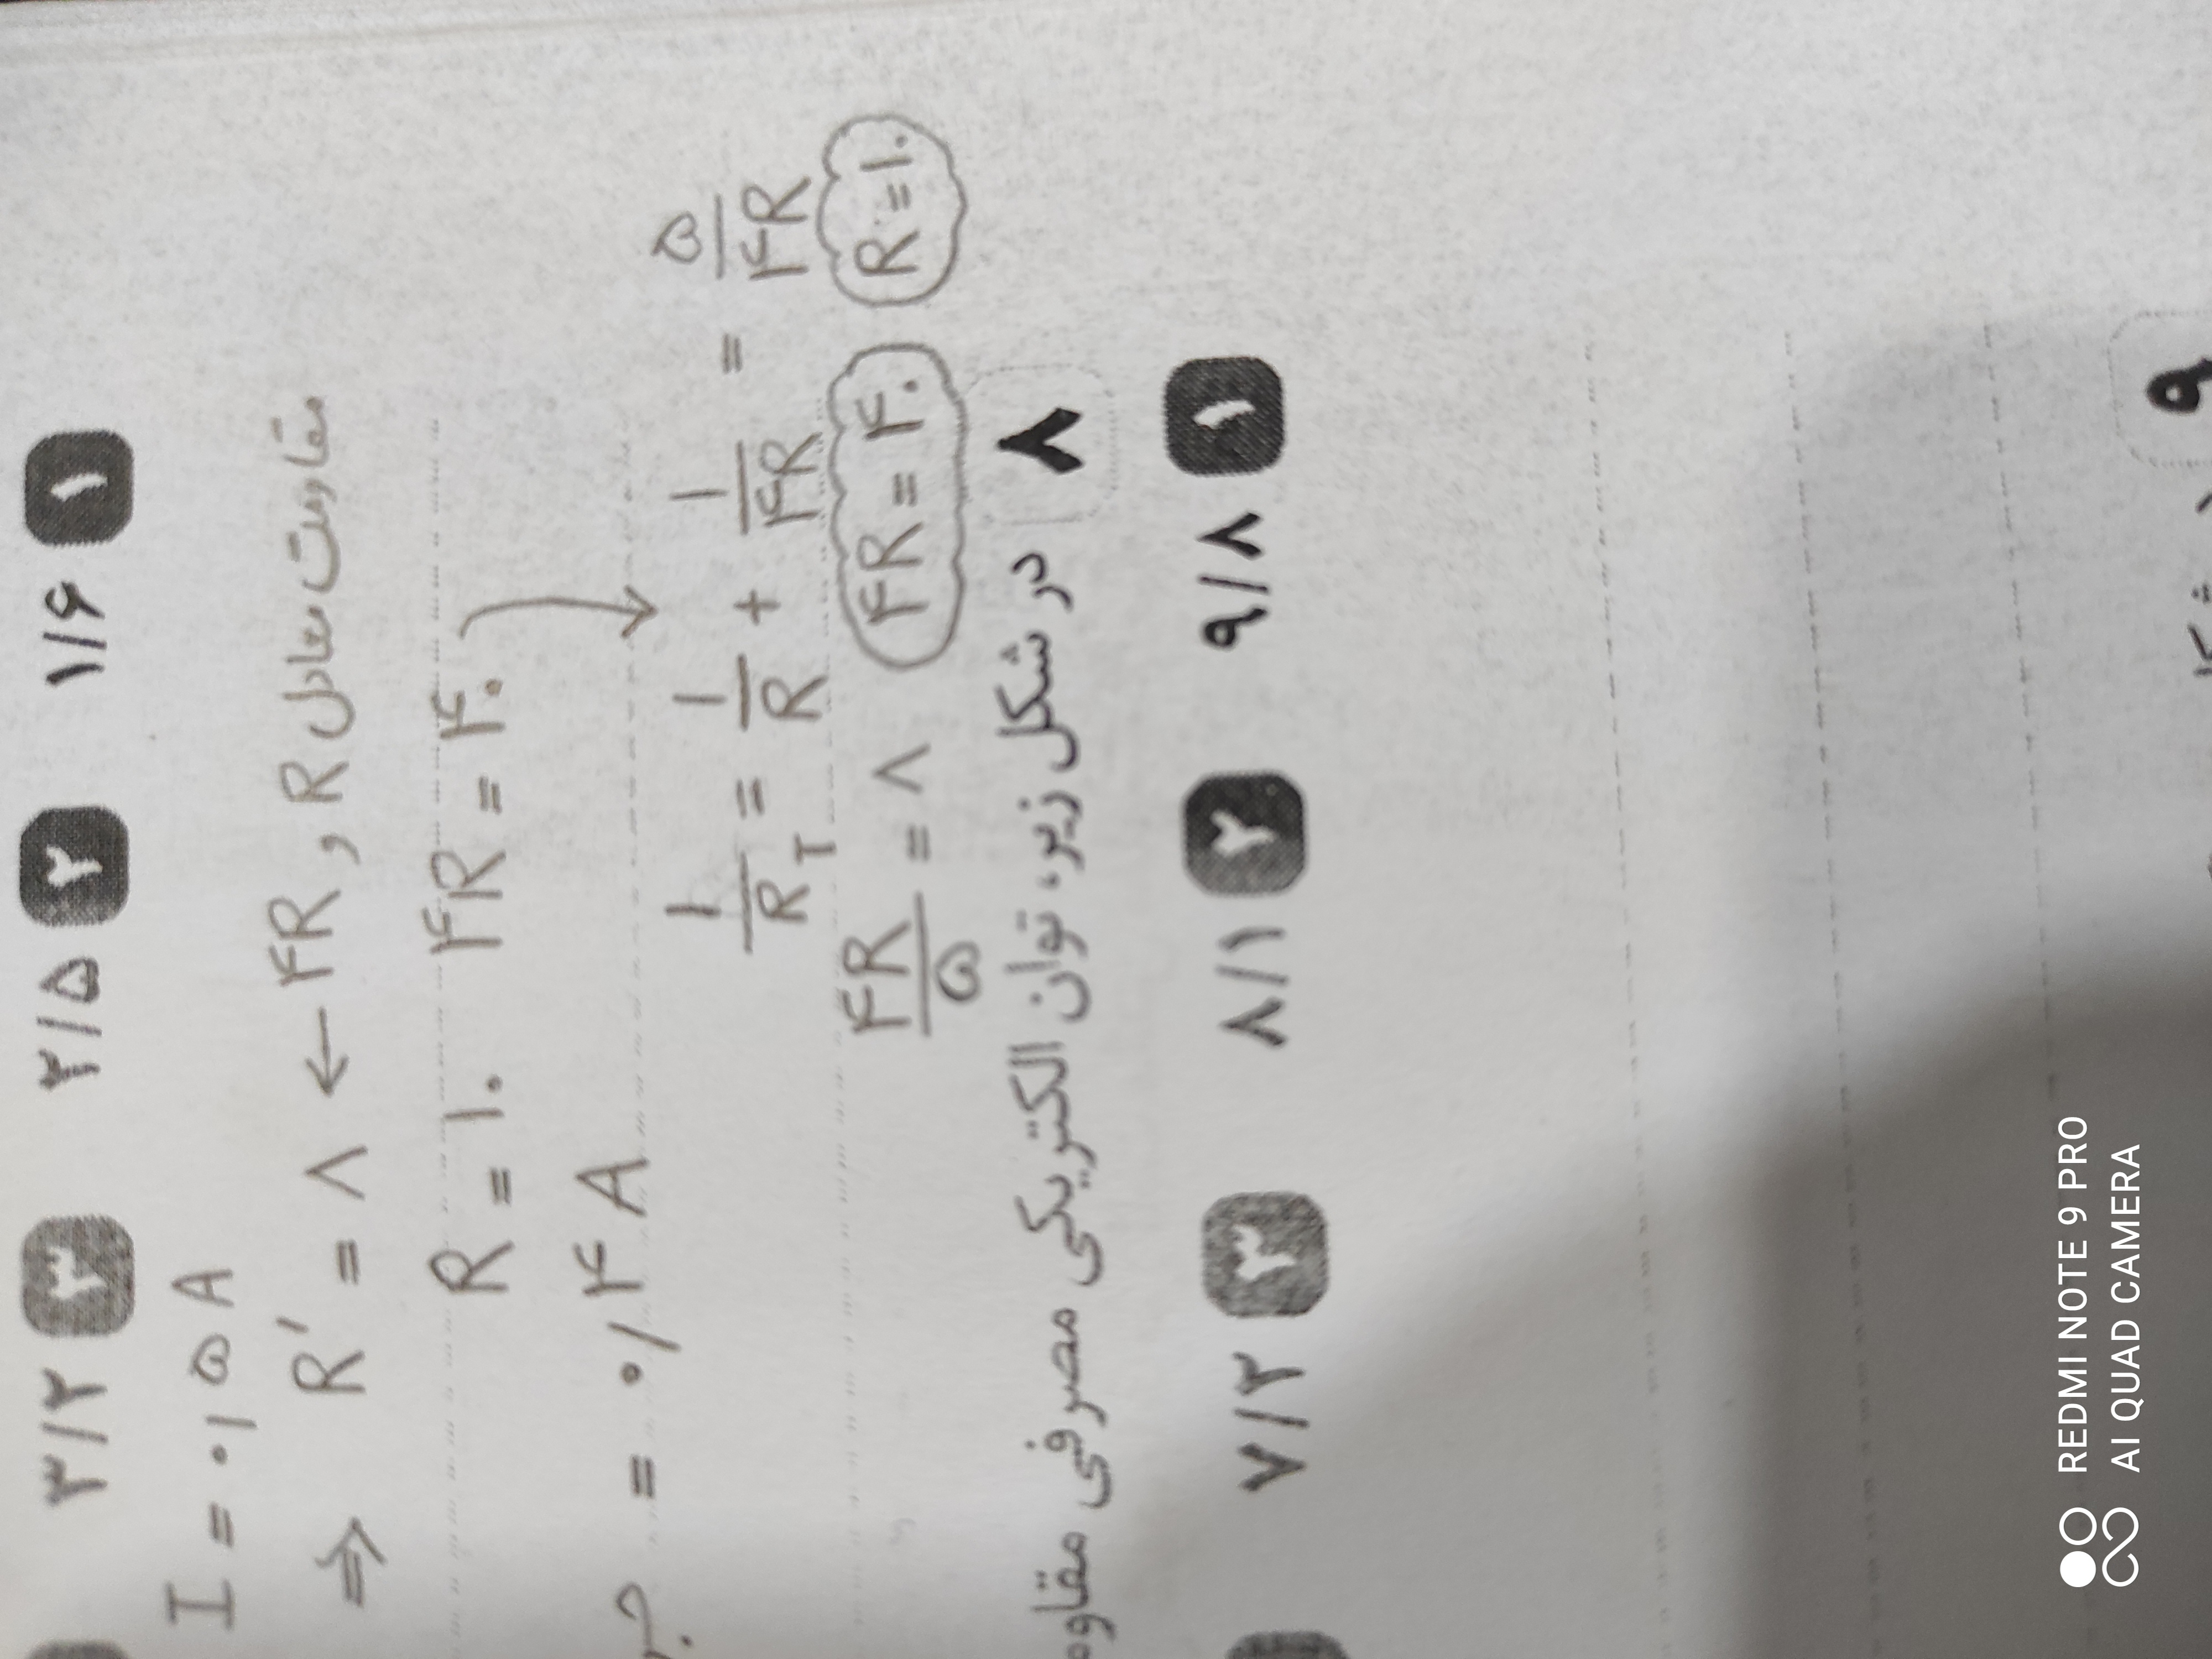 ۱ ۱/۶ ۲ ۲/۵ ۳ ۳/۲
I = ۰/۵ A
⇒ R' = ۸ ← ۴R , R مقاومت معادل
R = ۱۰ ۴R = ۴۰
= ۰/۴ A
1/R_T = 1/R + 1/۴R = ۵/۴R
۴R/۵ = ۸ ۴R = ۴۰ R = ۱۰
۸ در شکل زیر، توان الکتریکی مصرفی
۱ ۹/۸ ۲ ۸/۱ ۳ ۷/۲
۹
REDMI NOTE 9 PRO
AI QUAD CAMERA